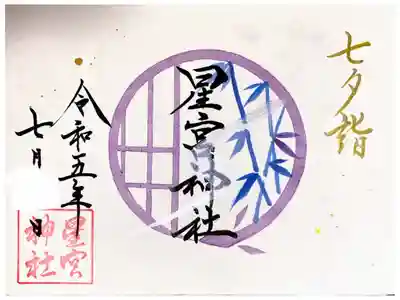 七夕詣
星宮神社
令和五年
七月 日
星宮
神社